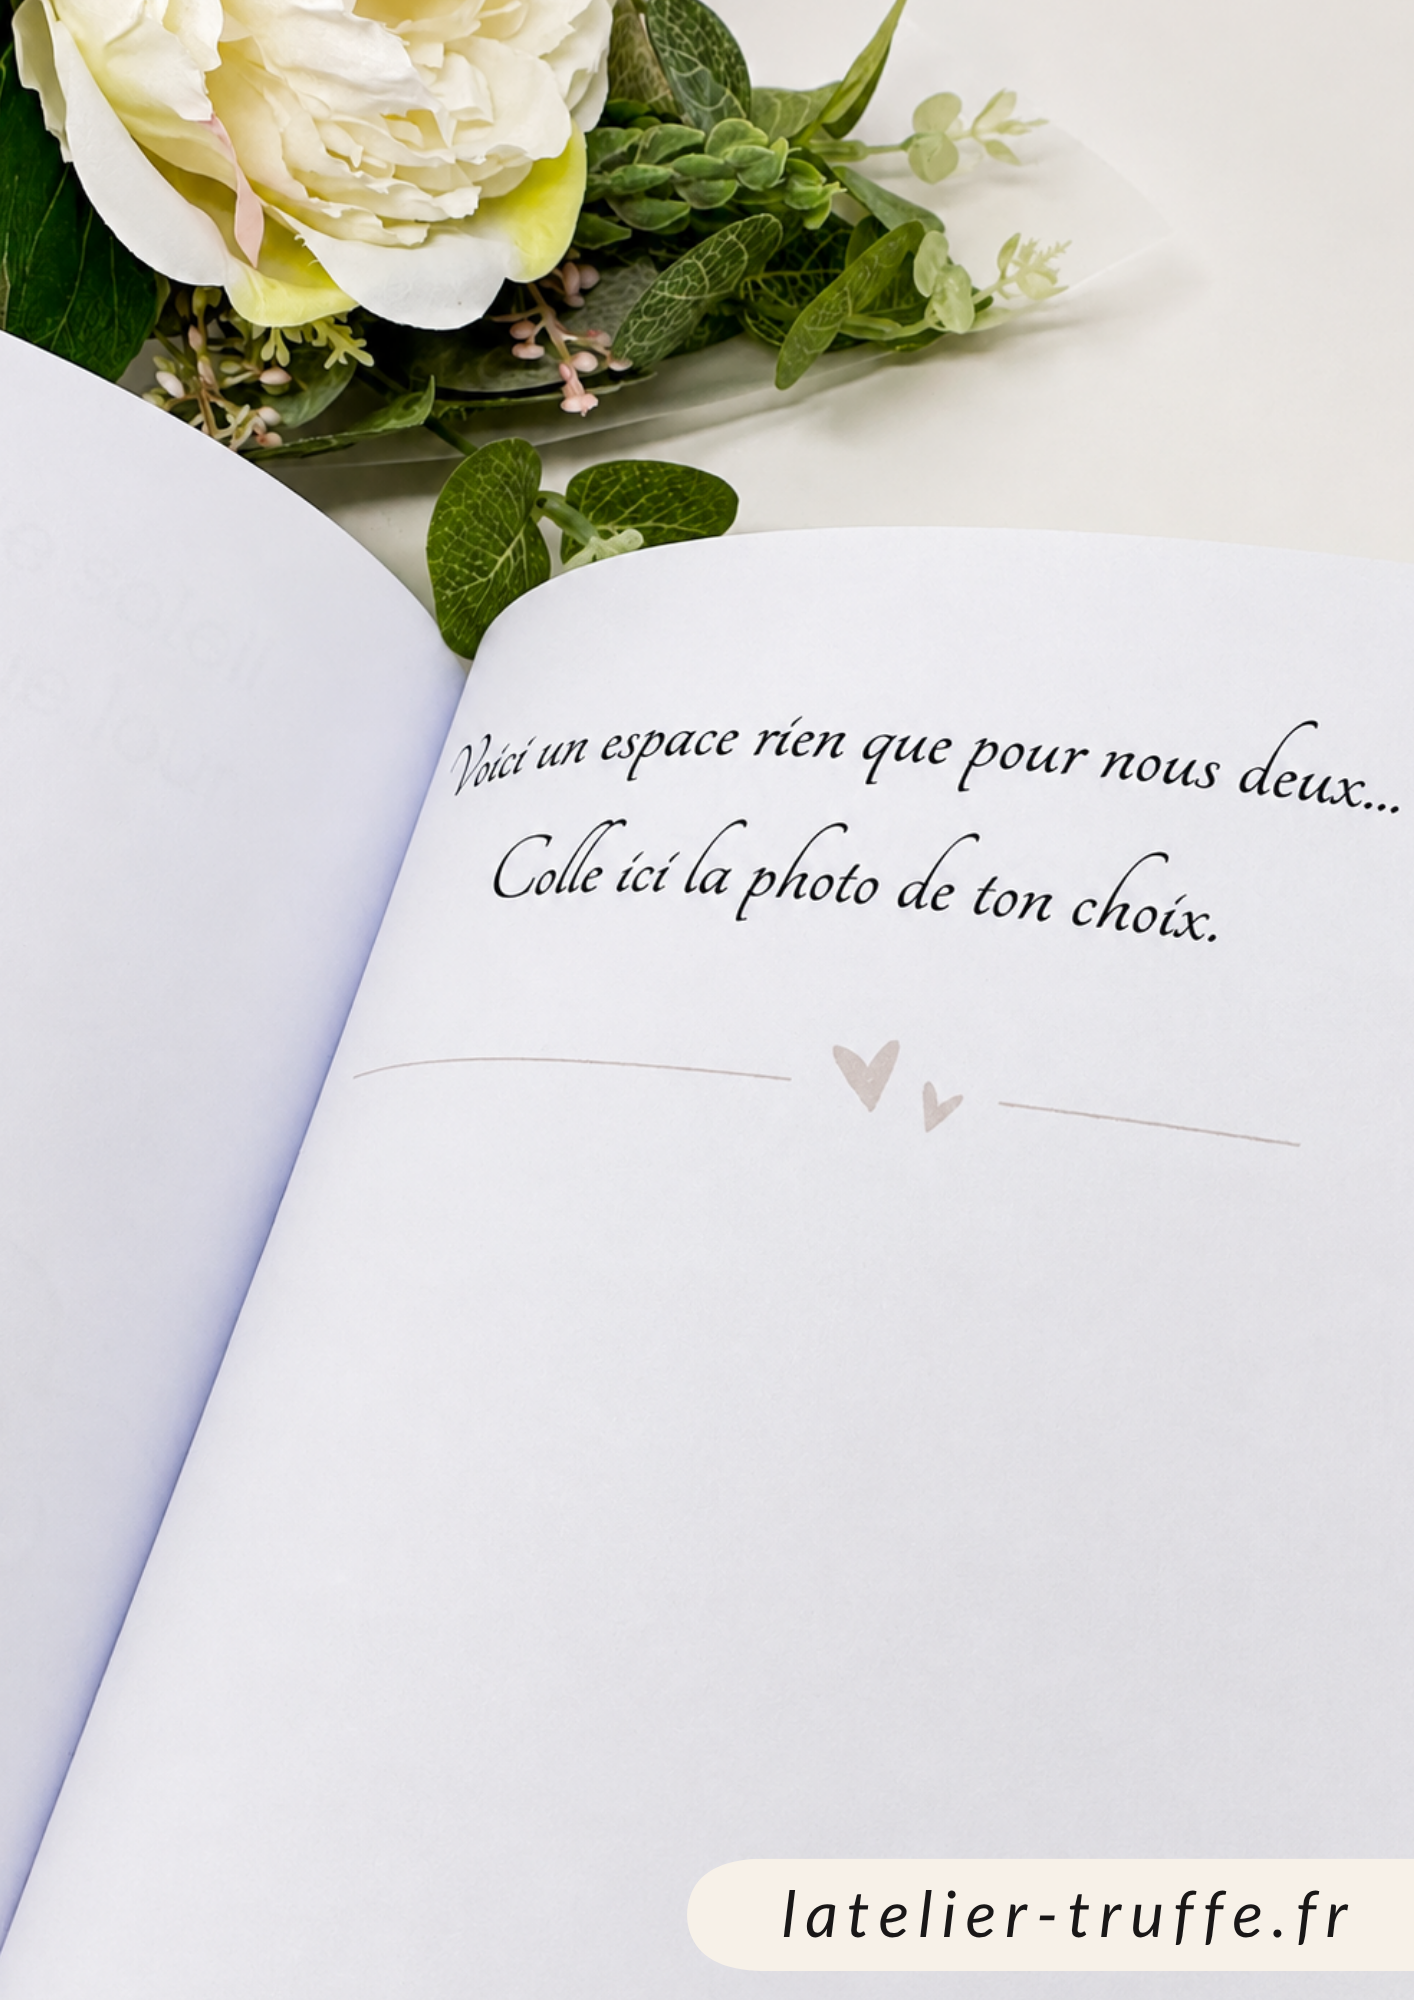 e soleil
Voici un espace rien que pour nous deux...
Colle ici la photo de ton choix.
latelier-truffe.fr